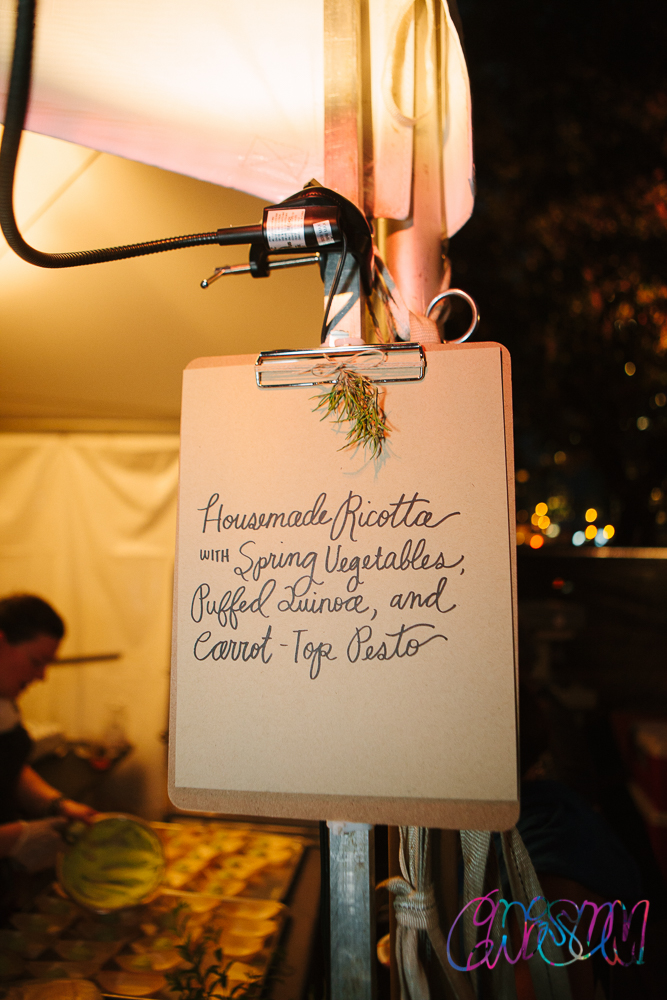 Housemade Ricotta
WITH Spring Vegetables,
Puffed Quinoa, and
Carrot-Top Pesto